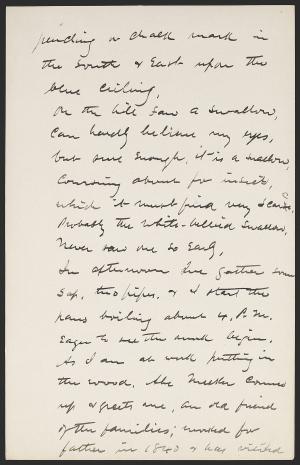 pencilling or chalk mark in
the South & East upon the
blue ceiling,
On the hill saw a swallow,
Can hardly believe my eyes,
but sure enough, it is a swallow,
Coursing about for insects,
which it must find very scarce,
Probably the White-bellied Swallow,
Never saw one so Early,
In afternoon I've gather some
Sap, two pipes, & I start the
pans boiling about 4, P.M.
Eager to see the smoke again.
As I am at work putting in
the wood, Abe Meeker comes
up & greets me, an old friend
of the families; worked for
father in 1840 & has visited